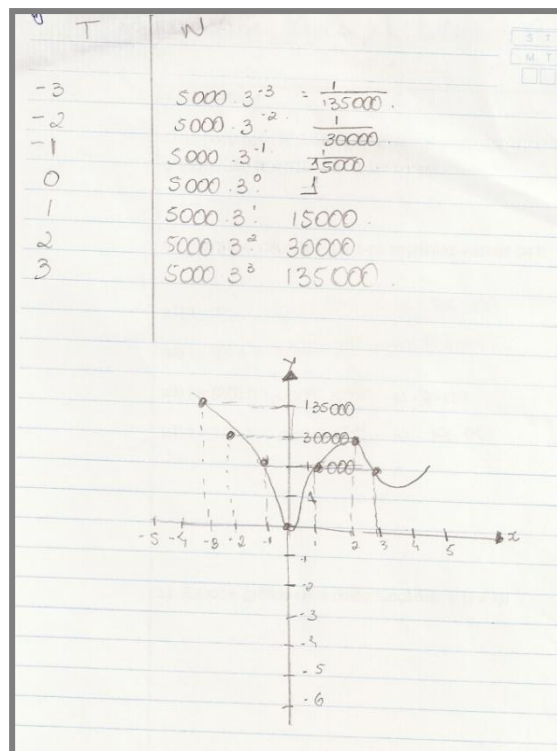 T N
S T
M T
-3 5000 . 3^-3 = 1/135000.
-2 5000 . 3^-2. 1/30000.
-1 5000 . 3^-1 1/15000
0 5000 . 3^0. 1
1 5000 . 3^1. 15000.
2 5000 . 3^2 30000
3 5000 3^3 135000.
y
135000
30000
1
-5 -4 -3 -2 -1 1 2 3 4 5 x
-1
-2
-3
-4
-5
-6